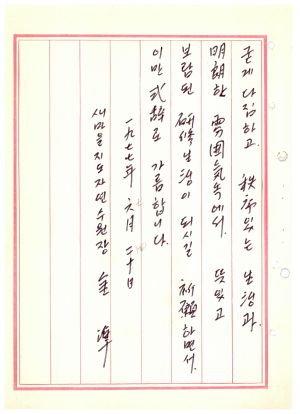 굳게 다짐하고. 秩序있는 생활과.
明朗한 雰囲気속에서. 뜻있고
보람된 研修생활이 되시길 祈願하면서.
이만 式辞로 가름합니다.
一九七七年 六月 二十日
새마을지도자연수원장 金 準